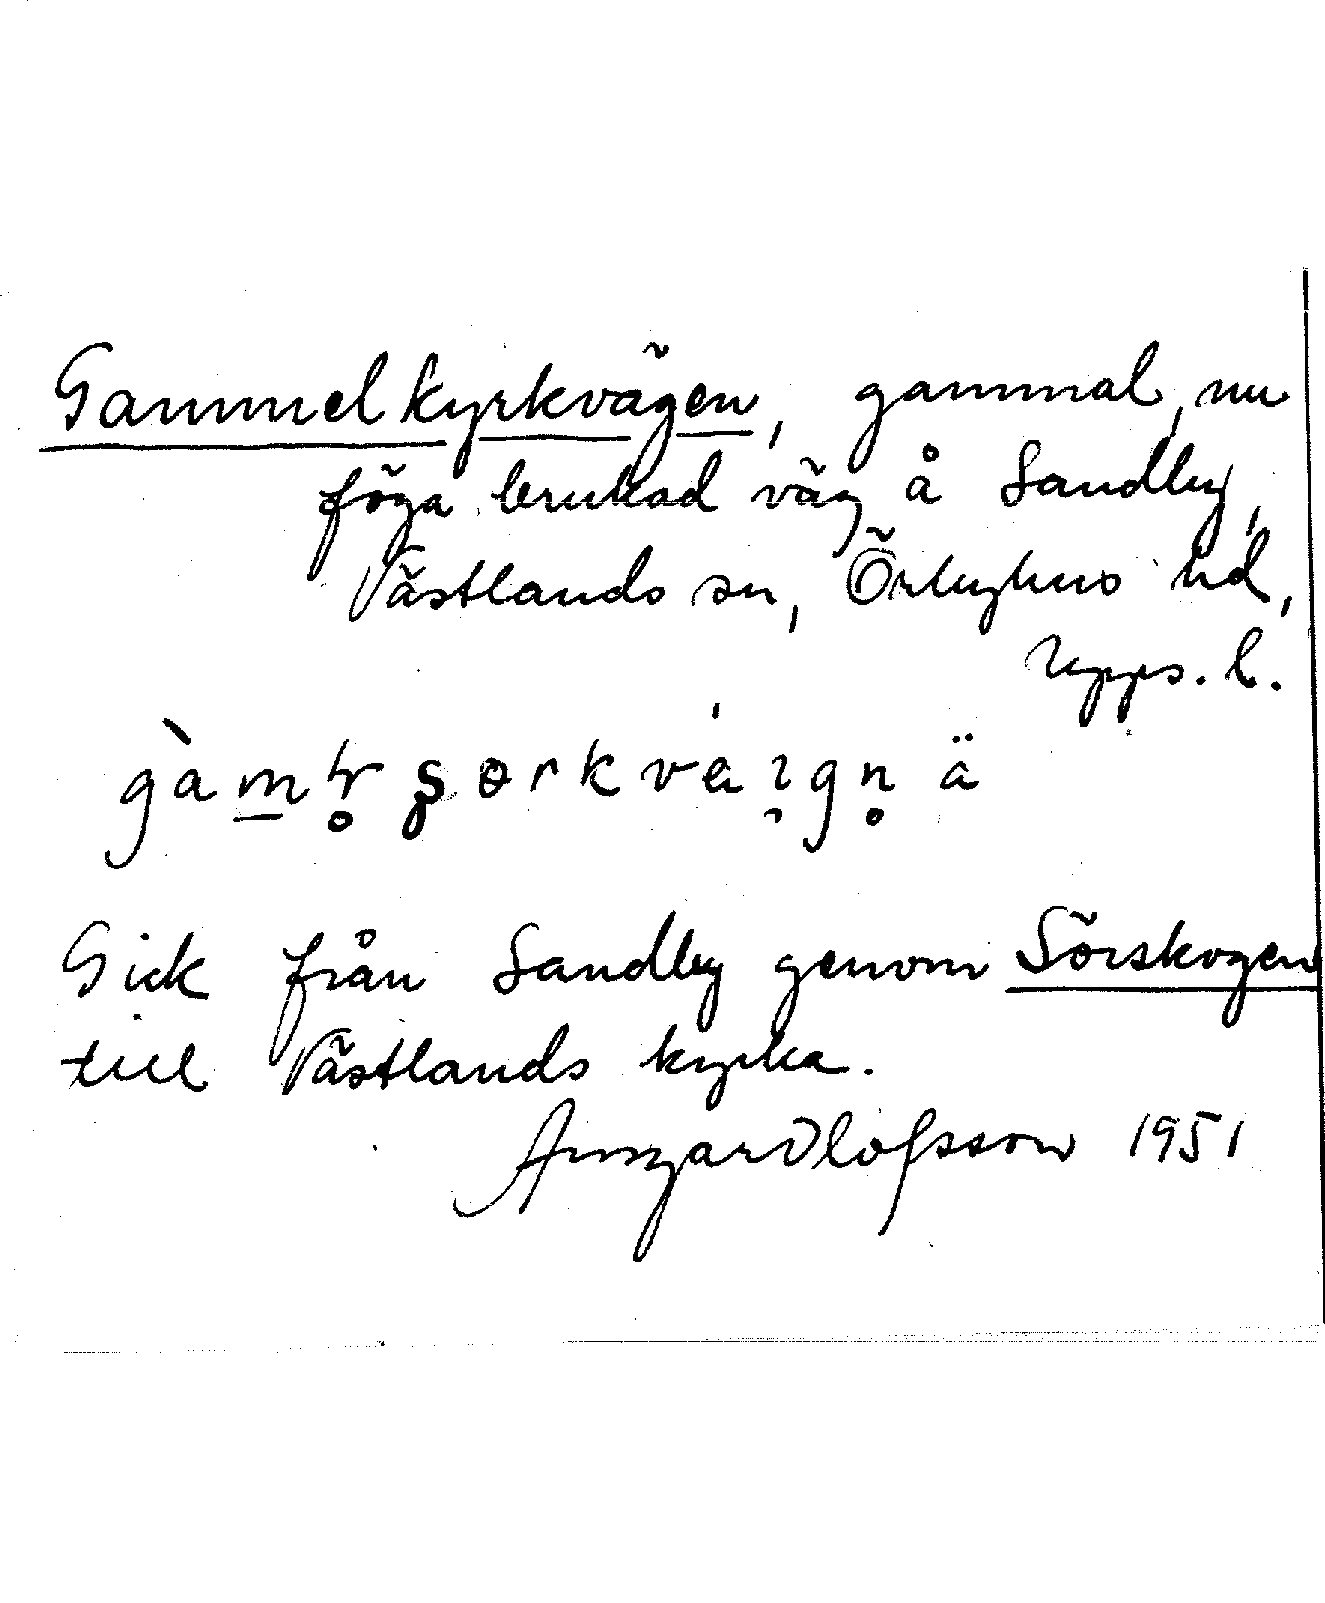 Gammelkyrkvägen, gammal, nu
föga brukad väg å Sandby,
Västlands sn, Örbyhus hd,
Upps. l.
ä
Gick från Sandby genom Sörskogen
till Västlands kyrka.
Ansgar Olofsson 1951